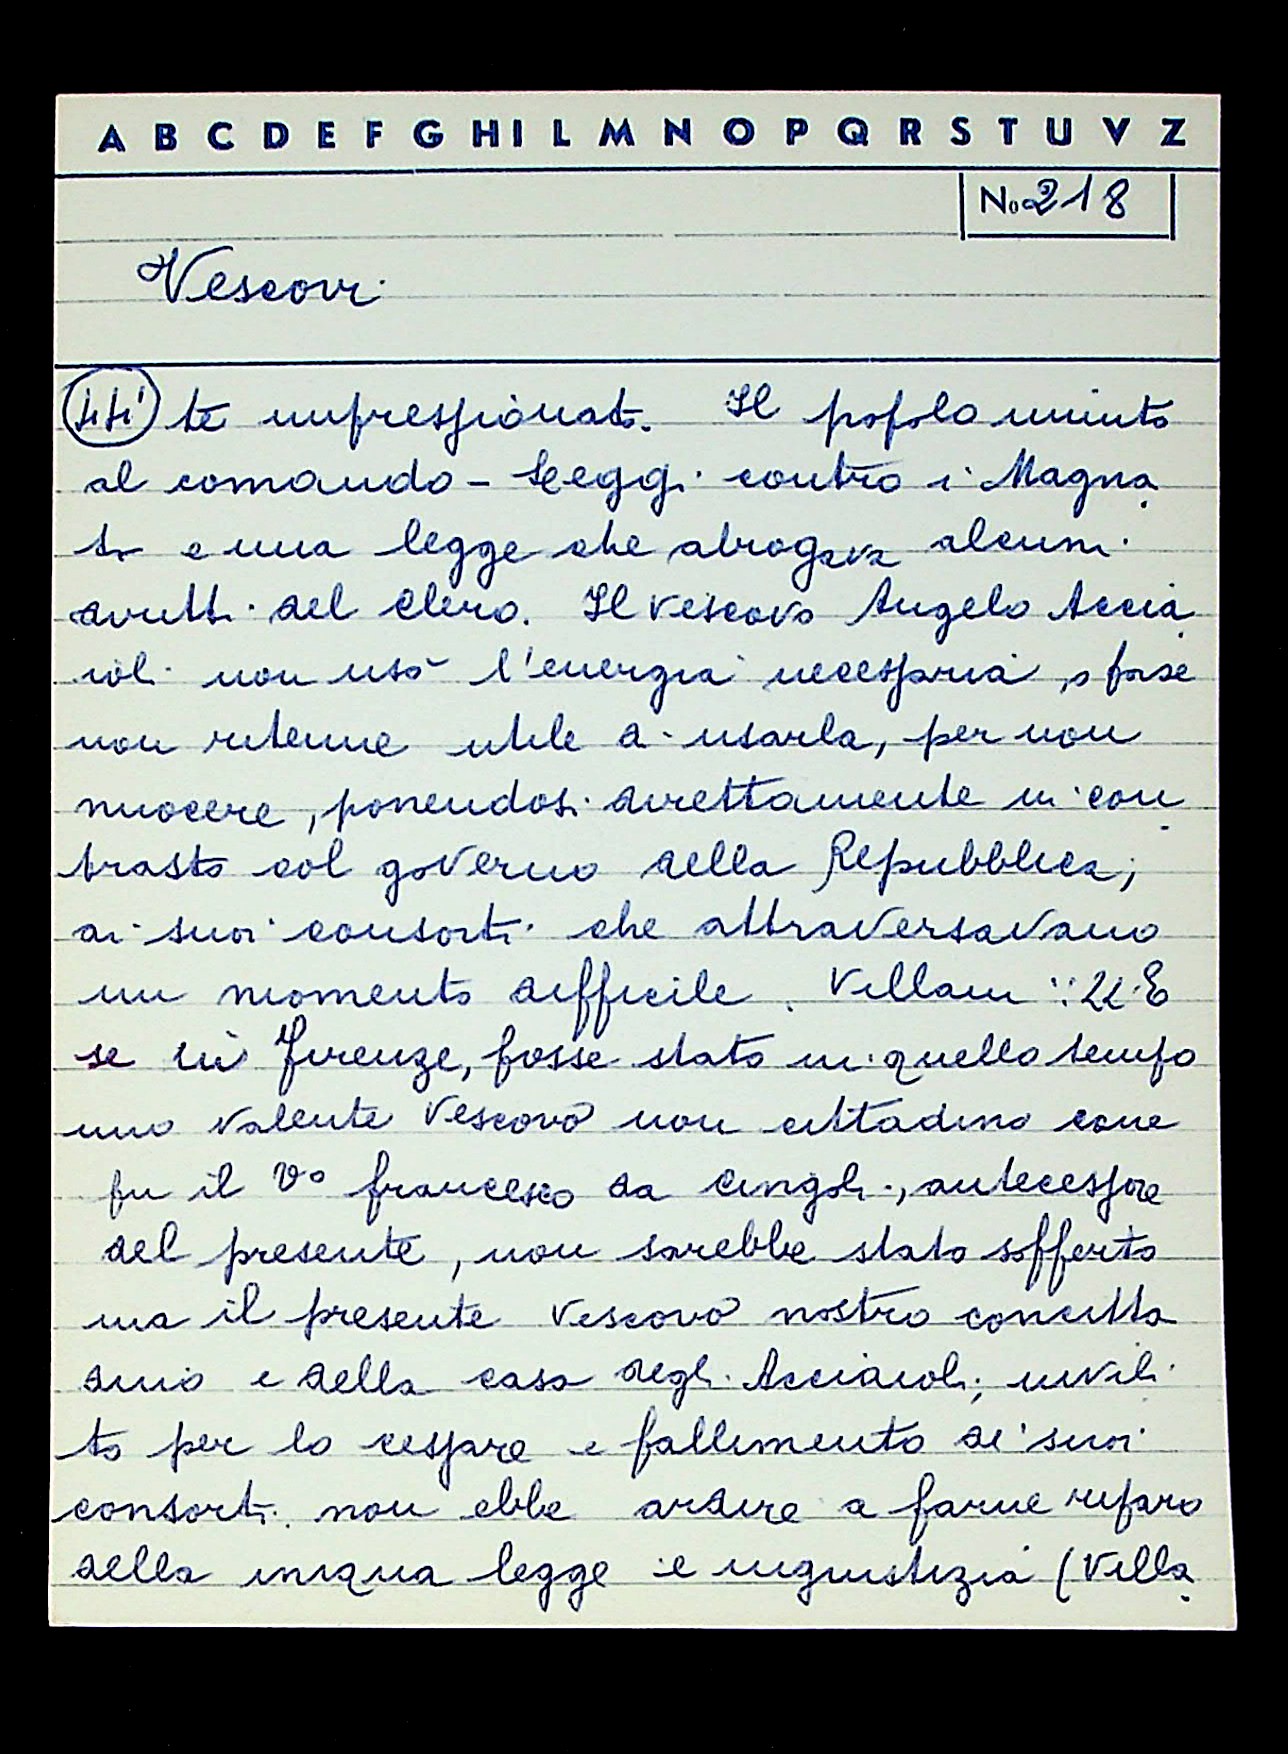 A B C D E F G H I L M N O P Q R S T U V Z
No 218
Vescovi
te impressionato. Il popolo minuto
al comando - Leggi contro i Magna
ti e una legge che abrogava alcuni
diritti del Clero. Il vescovo Angelo Accia
ioli non usò l'energia necessaria, o forse
non ritenne utile di usarla, per non
nuocere, ponendosi direttamente in con
trasto col governo della Repubblica,
ai suoi consorti che attraversavano
un momento difficile. Villani :: "E
se in Firenze, fosse stato in quello tempo
uno valente Vescovo non cittadino come
fu il Vo francesco da Cingoli, antecessore
del presente, non sarebbe stato sofferto
ma il presente Vescovo nostro concitta
dino e della casa degli Acciaioli, invili
to per lo cessare e fallimento de' suoi
consorti non ebbe ardire a farne riparo
della iniqua legge e ingiustizia (Villa